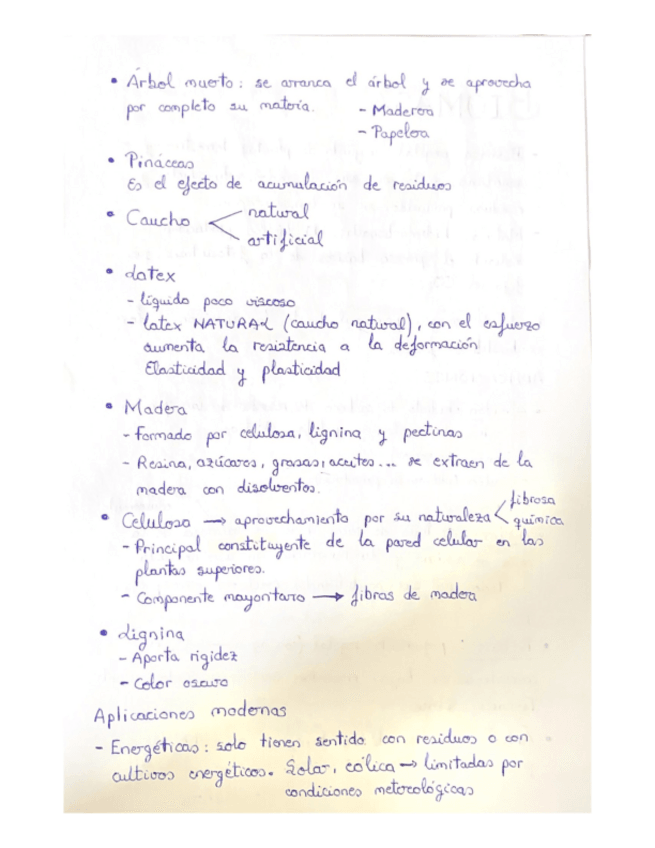 • Árbol muerto: se arranca el árbol y se aprovecha
por completo su materia.
- Maderera
- Papelera
• Pináceas
Es el efecto de acumulación de residuos
• Caucho
natural
artificial
• Latex
- líquido poco viscoso
- latex NATURAL (caucho natural), con el esfuerzo
aumenta la resistencia a la deformación
Elasticidad y plasticidad
• Madera
- Formado por celulosa, lignina y pectinas
- Resina, azúcares, grasas, aceites... se extraen de la
madera con disolventos.
• Celulosa → aprovechamiento por su naturaleza
fibrosa
química
- Principal constituyente de la pared celular en las
plantas superiores.
- Componente mayoritario → fibras de madera
• Lignina
- Aporta rigidez
- Color oscuro
Aplicaciones modernas
- Energéticas: solo tienen sentido con residuos o con
cultivos energéticos. Solar, eólica → limitadas por
condiciones meteorológicas